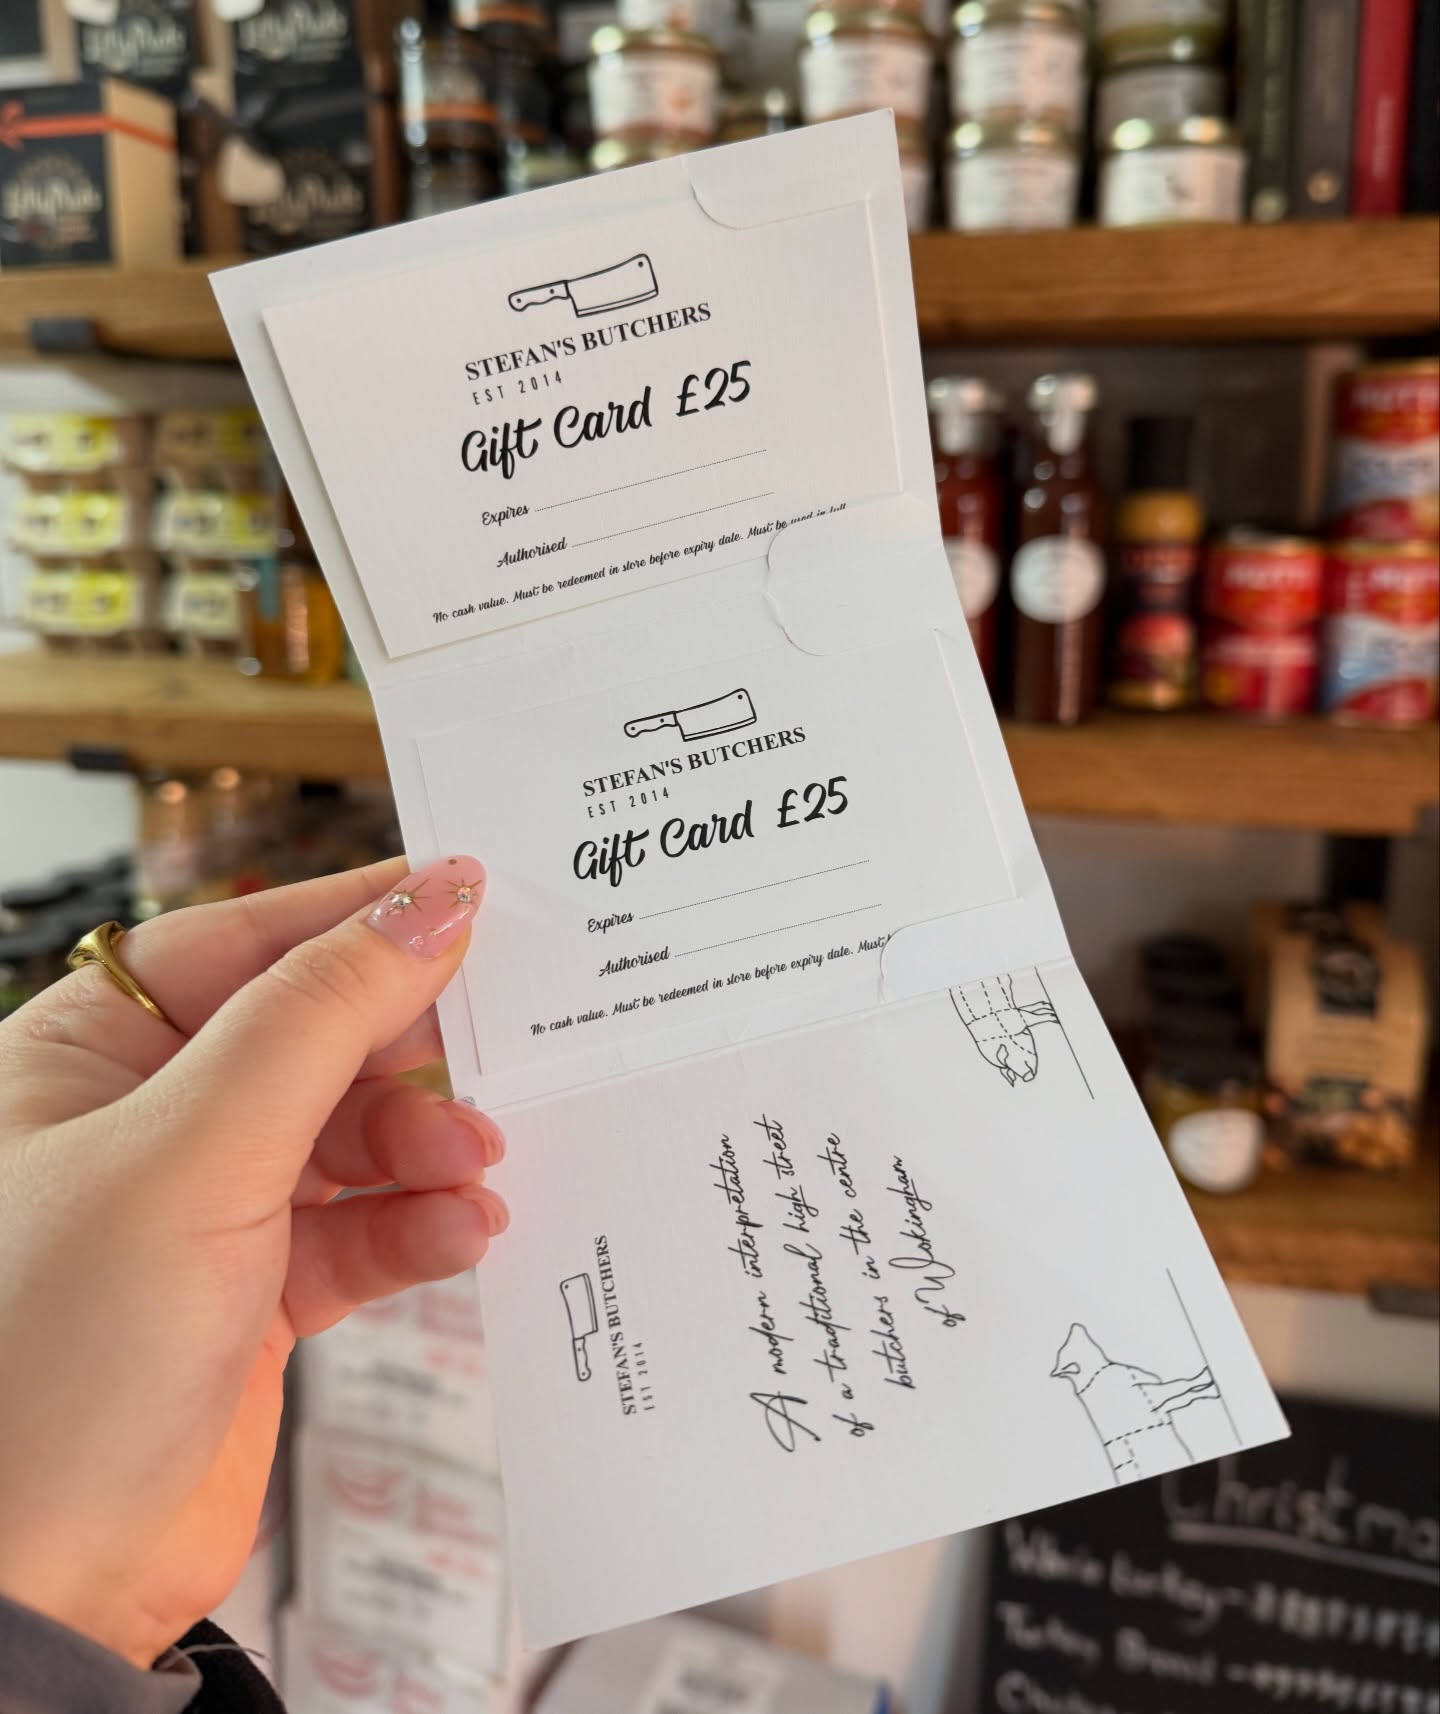 STEFAN'S BUTCHERS
EST 2014
Gift Card £25
Expires
Authorised
No cash value. Must be redeemed in store before expiry date. Must be used in full
STEFAN'S BUTCHERS
EST 2014
Gift Card £25
Expires
Authorised
No cash value. Must be redeemed in store before expiry date. Must
STEFAN'S BUTCHERS
EST 2014
A modern interpretation
of a traditional high street
butchers in the centre
of Wokingham
Christma